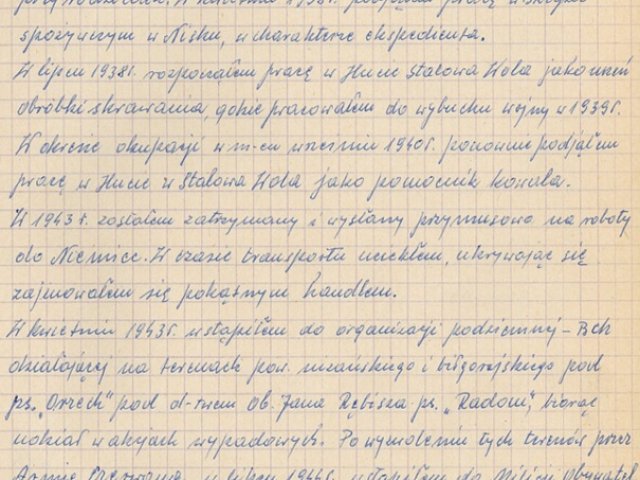 przy rodzicach. W kwietniu 1938r. podjąłem pracę w sklepie
spożywczym w Nisku, w charakterze ekspedienta.
W lipcu 1938r. rozpocząłem pracę w Hucie Stalowa Wola jako uczeń
obróbki skrawania, gdzie pracowałem do wybuchu wojny w 1939r.
W okresie okupacji w m-cu wrześniu 1940r. ponownie podjąłem
pracę w Hucie w Stalowa Wola jako pomocnik kowala.
W 1943 r. zostałem zatrzymany i wysłany przymusowo na roboty
do Niemiec. W czasie transportu uciekłem, ukrywając się
zajmowałem się pokątnym handlem.
W kwietniu 1943r. wstąpiłem do organizacji podziemnej - Bch
działającej na terenach pow. niżańskiego i biłgorajskiego pod
ps. „Orzech" pod d-twem Ob. Jana Kebisza ps. „Radoń", biorąc
udział w akcjach wypadowych. Po wyzwoleniu tych terenów przez
Armię Czerwoną w lipcu 1944r. wstąpiłem do Milicji Obywatel